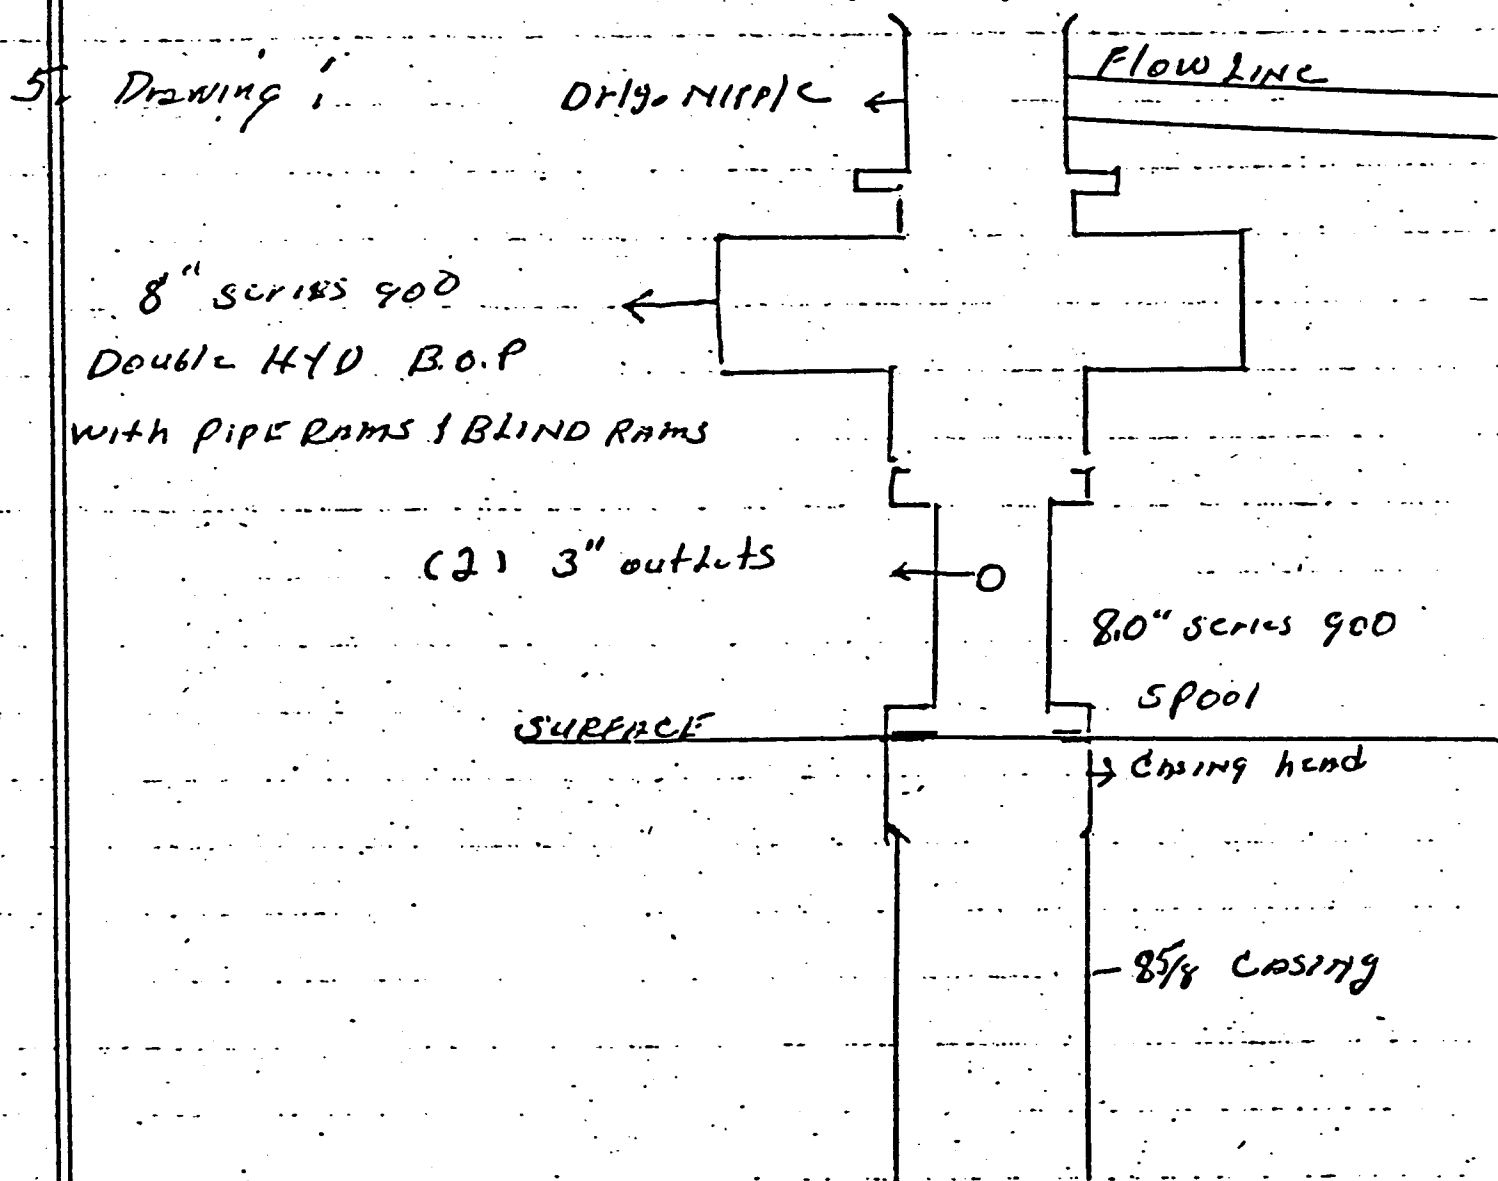 5. Drawing :
Drlg. Nipple
Flow Line
8" series 900
Double HYD B.O.P
with PIPE RAMS & BLIND RAMS
(2) 3" outlets
8.0" series 900
Spool
SURFACE
Casing head
8 5/8 CASING